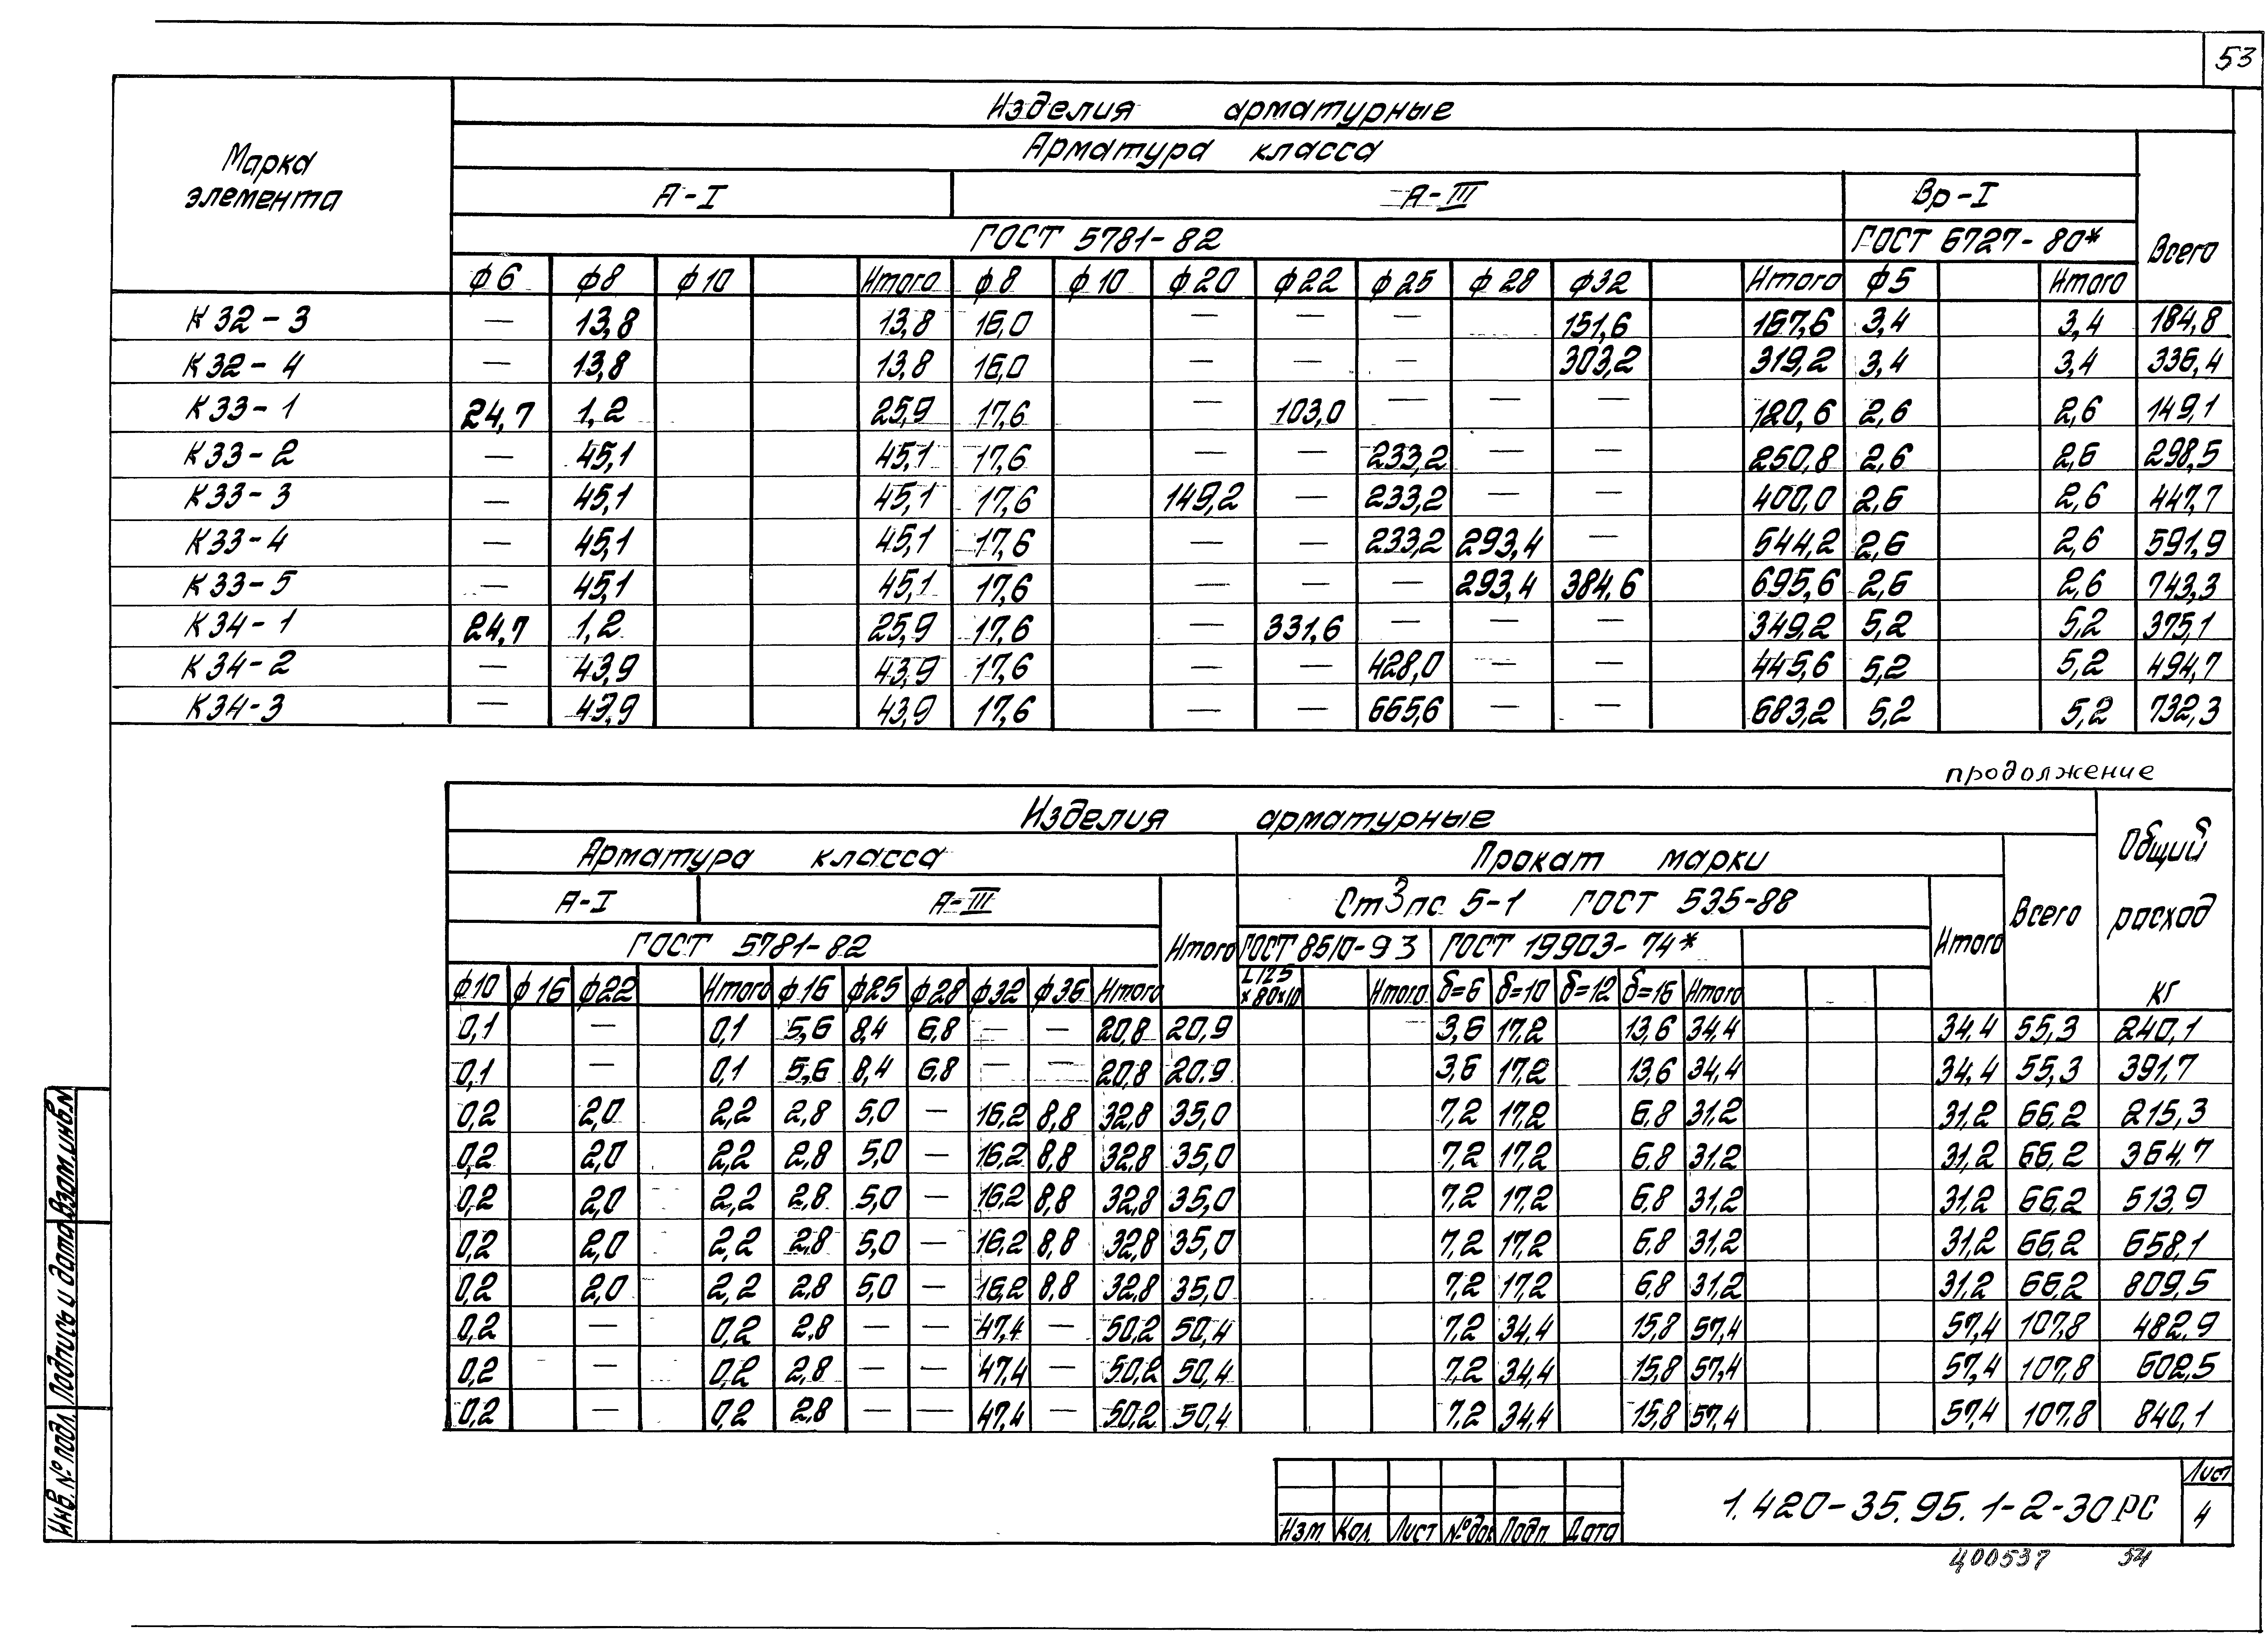 53
Марка элемента
Изделия арматурные
Арматура класса
А-I А-III Вр-I
ГОСТ 5781-82 ГОСТ 6727-80* Всего
ф6 ф8 ф10 Итого ф8 ф10 ф20 ф22 ф25 ф28 ф32 Итого ф5 Итого
К32-3 — 13,8 13,8 16,0 — — — 151,6 167,6 3,4 3,4 184,8
К32-4 — 13,8 13,8 16,0 — — — 303,2 319,2 3,4 3,4 336,4
К33-1 24,7 1,2 25,9 17,6 — 103,0 — — — 120,6 2,6 2,6 149,1
К33-2 — 45,1 45,1 17,6 — — 233,2 — — 250,8 2,6 2,6 298,5
К33-3 — 45,1 45,1 17,6 149,2 — 233,2 — — 400,0 2,6 2,6 447,7
К33-4 — 45,1 45,1 17,6 — — 233,2 293,4 — 544,2 2,6 2,6 591,9
К33-5 — 45,1 45,1 17,6 — — — 293,4 384,6 695,6 2,6 2,6 743,3
К34-1 24,7 1,2 25,9 17,6 — 331,6 — — — 349,2 5,2 5,2 375,1
К34-2 — 43,9 43,9 17,6 — — 428,0 — — 445,6 5,2 5,2 494,7
К34-3 — 43,9 43,9 17,6 — — 665,6 — — 683,2 5,2 5,2 732,3
продолжение
Изделия арматурные Общий расход кг
Арматура класса Прокат марки Всего
А-I А-III Итого Ст3пс 5-1 ГОСТ 535-88 Итого
ГОСТ 5781-82 ГОСТ 8510-93 ГОСТ 19903-74*
ф10 ф16 ф22 Итого ф16 ф25 ф28 ф32 ф36 Итого L125×80×10 Итого δ=6 δ=10 δ=12 δ=16 Итого
0,1 — 0,1 5,6 8,4 6,8 — — 20,8 20,9 — 3,6 17,2 13,6 34,4 34,4 55,3 240,1
0,1 — 0,1 5,6 8,4 6,8 — — 20,8 20,9 3,6 17,2 13,6 34,4 34,4 55,3 391,7
0,2 2,0 2,2 2,8 5,0 — 16,2 8,8 32,8 35,0 7,2 17,2 6,8 31,2 31,2 66,2 215,3
0,2 2,0 2,2 2,8 5,0 — 16,2 8,8 32,8 35,0 7,2 17,2 6,8 31,2 31,2 66,2 364,7
0,2 2,0 2,2 2,8 5,0 — 16,2 8,8 32,8 35,0 7,2 17,2 6,8 31,2 31,2 66,2 513,9
0,2 2,0 2,2 2,8 5,0 — 16,2 8,8 32,8 35,0 7,2 17,2 6,8 31,2 31,2 66,2 658,1
0,2 2,0 2,2 2,8 5,0 — 16,2 8,8 32,8 35,0 7,2 17,2 6,8 31,2 31,2 66,2 809,5
0,2 — 0,2 2,8 — — 47,4 — 50,2 50,4 7,2 34,4 15,8 57,4 57,4 107,8 482,9
0,2 — 0,2 2,8 — — 47,4 — 50,2 50,4 7,2 34,4 15,8 57,4 57,4 107,8 602,5
0,2 — 0,2 2,8 — — 47,4 — 50,2 50,4 7,2 34,4 15,8 57,4 57,4 107,8 840,1
Инв. № подл. Подпись и дата Взам.инв.N
Изм. Кол. Лист № док Подп. Дата
1.420-35.95.1-2-30РС
Лист
4
Ц00537 54